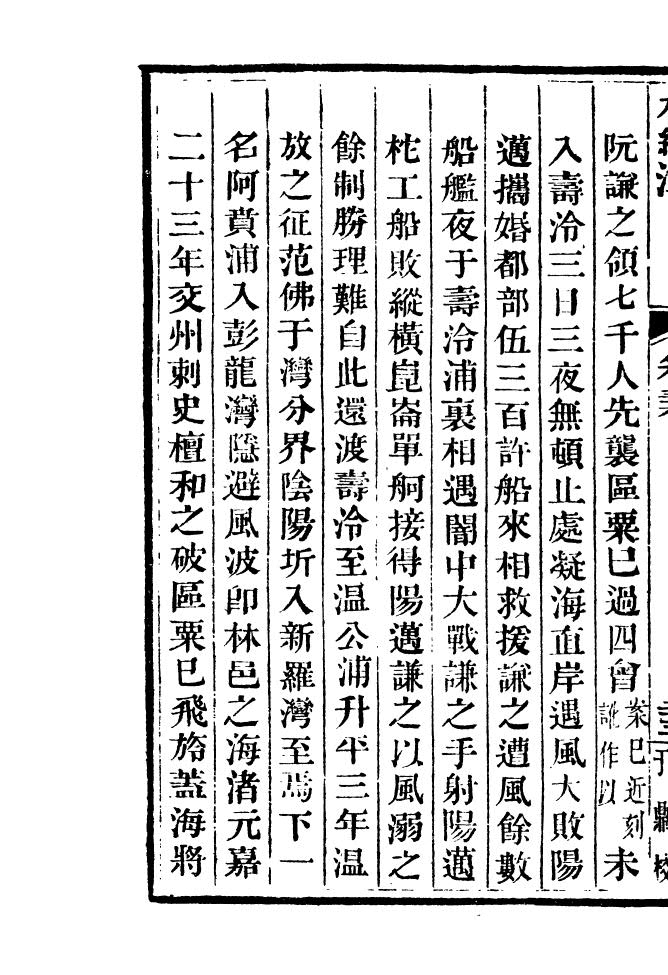 阮謙之領七千人先襲區粟巳過四會案巳近刻訛作以未
入壽泠三日三夜無頓止處凝海直岸遇風大敗陽
邁攜婚都部伍三百許船來相救援謙之遭風餘數
船艦夜于壽泠浦裏相遇闇中大戰謙之手射陽邁
柁工船敗縱橫崑崙單舸接得陽邁謙之以風溺之
餘制勝理難自此還渡壽泠至温公浦升平三年温
放之征范佛于灣分界陰陽圻入新羅灣至焉下一
名阿賁浦入彭龍灣隱避風波卽林邑之海渚元嘉
二十三年交州刺史檀和之破區粟巳飛旍蓋海將